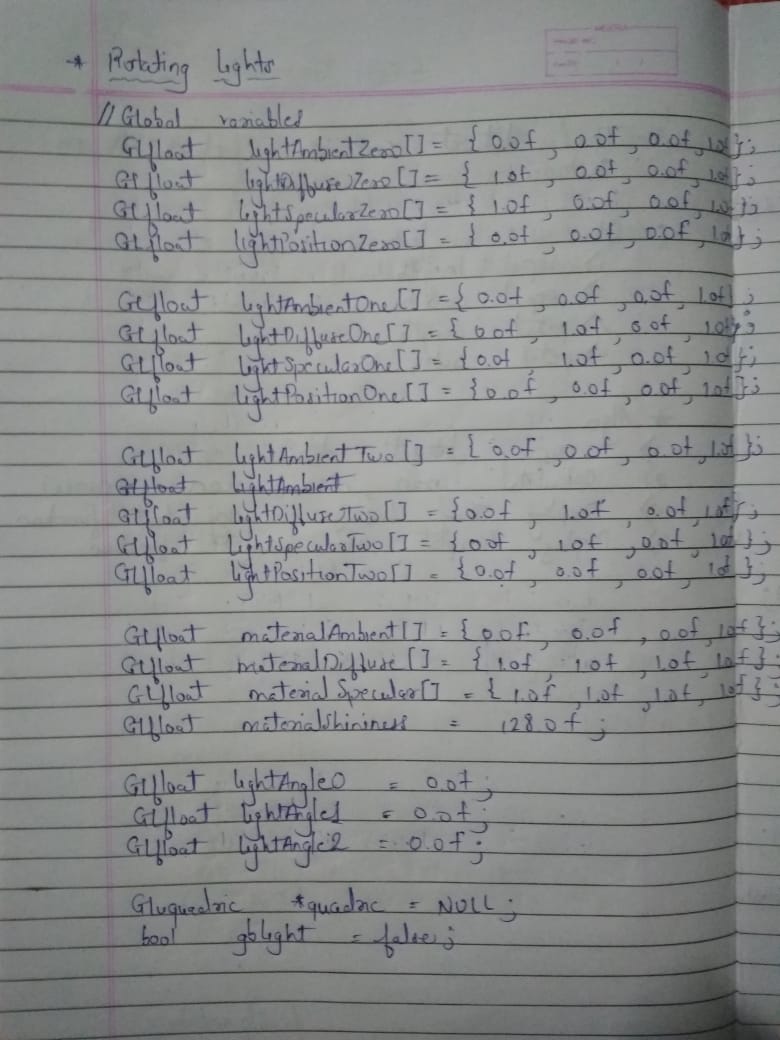 * Rotating lights
// Global variables
GLfloat lightAmbientZero[] = { 0.0f, 0.0f, 0.0f, 1.0f};
GLfloat lightDiffuseZero[] = { 1.0f, 0.0f, 0.0f, 1.0f};
GLfloat lightSpecularZero[] = { 1.0f, 0.0f, 0.0f, 1.0f};
GLfloat lightPositionZero[] = { 0.0f, 0.0f, 0.0f, 1.0f};
GLfloat lightAmbientOne[] = { 0.0f, 0.0f, 0.0f, 1.0f};
GLfloat lightDiffuseOne[] = { 0.0f, 1.0f, 0.0f, 1.0f};
GLfloat lightSpecularOne[] = {0.0f, 1.0f, 0.0f, 1.0f};
GLfloat lightPositionOne[] = {0.0f, 0.0f, 0.0f, 1.0f};
GLfloat lightAmbientTwo[] = { 0.0f, 0.0f, 0.0f, 1.0f};
GLfloat lightAmbient
GLfloat lightDiffuseTwo[] = {0.0f, 1.0f, 0.0f, 1.0f};
GLfloat lightSpecularTwo[] = {0.0f, 1.0f, 0.0f, 1.0f};
GLfloat lightPositionTwo[] = {0.0f, 0.0f, 0.0f, 1.0f};
GLfloat materialAmbient[] = {0.0f, 0.0f, 0.0f, 1.0f};
GLfloat materialDiffuse[] = {1.0f, 1.0f, 1.0f, 1.0f};
GLfloat materialSpecular[] = {1.0f, 1.0f, 1.0f, 1.0f};
GLfloat materialShininess = 128.0f;
GLfloat lightAngle0 = 0.0f;
GLfloat lightAngle1 = 0.0f;
GLfloat lightAngle2 = 0.0f;
GLuquadric *quadric = NULL;
bool gbLight = false;